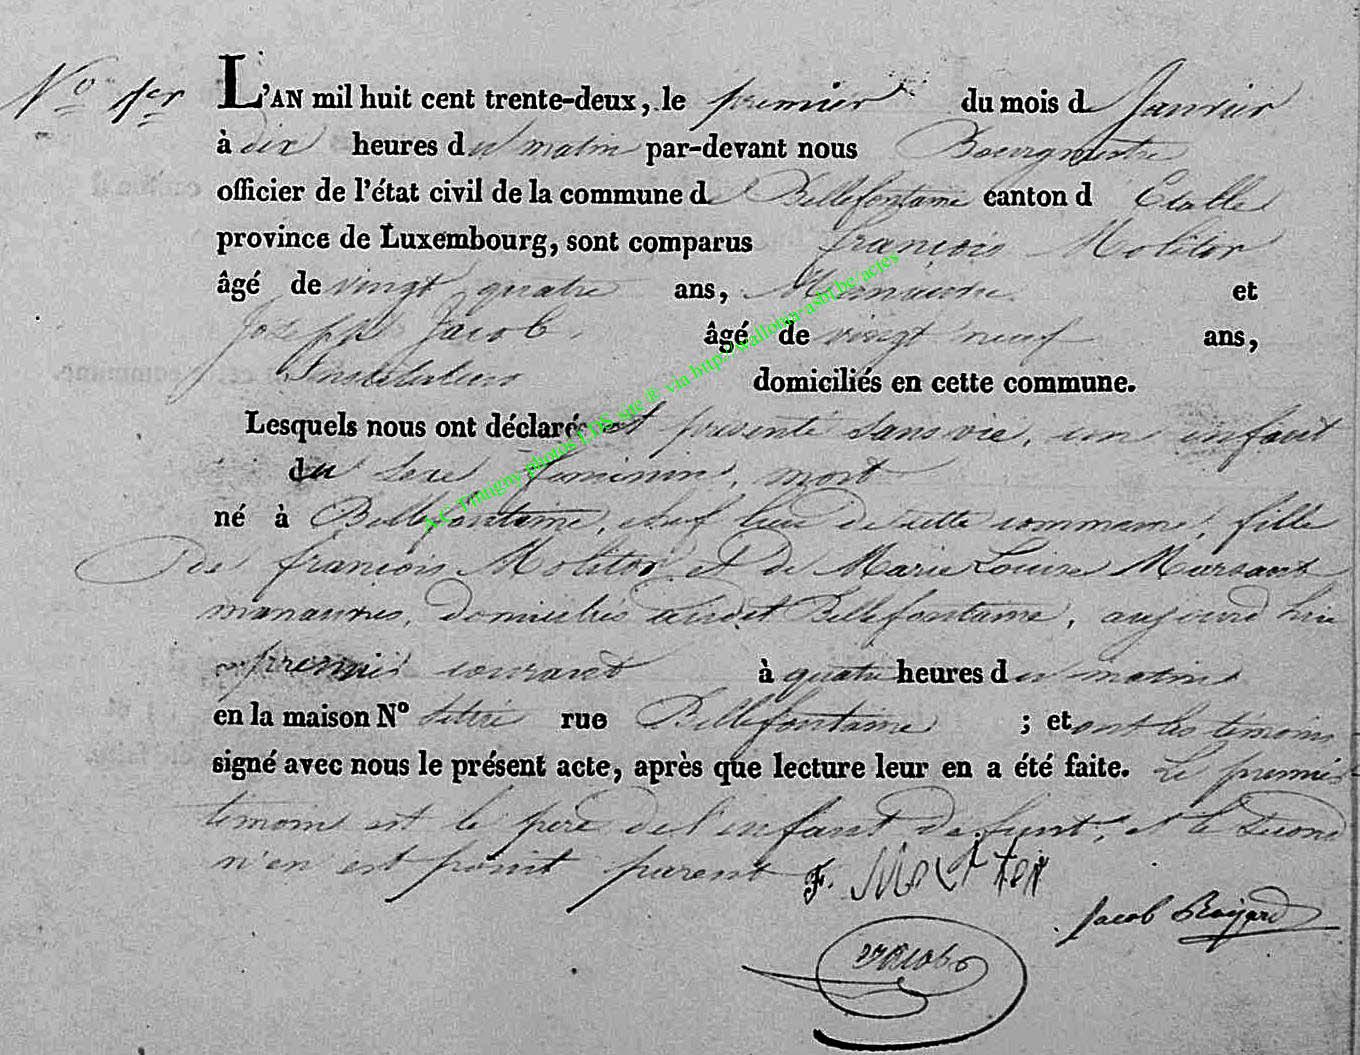 N.o 1er
L'AN mil huit cent trente-deux, le premier du mois de Janvier
à dix heures du matin par-devant nous Bourgmestre
officier de l'état civil de la commune de Bellefontaine canton d Etalle
province de Luxembourg, sont comparus françois Molitor
âgé de vingt quatre ans, Manœuvre et
Joseph Jacob, âgé de vingt neuf ans,
Instituteur domiciliés en cette commune.
Lesquels nous ont déclaré et présenté sans vie, un enfant
du sexe feminin, mort
né à Bellefontaine, chef lieu de cette commune, fille
De françois Molitor et de Marie Louise Marsant
manœuvres, domiciliés audit Bellefontaine, aujourd hui
premier courant à quatre heures du matin
en la maison No rue Bellefontaine ; et ont les temoins
signé avec nous le présent acte, après que lecture leur en a été faite. Le premier
temoin est le père de l'enfant defunt, et le second
n'en est point parent
F. Molitor
Jacob
Jacob
A.C. Tintigny photos LDS site & via http://wallonia-asbl.be/actes